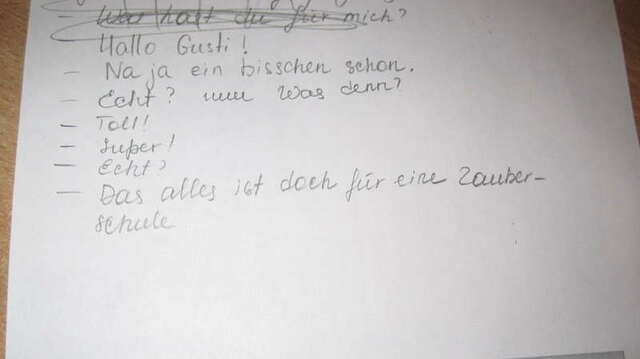 – Was hast du für mich?
– Hallo Gusti!
– Na ja ein bisschen schon.
– Echt? Was denn?
– Toll!
– Super!
– Echt?
– Das alles ist doch für eine Zauber–
schule